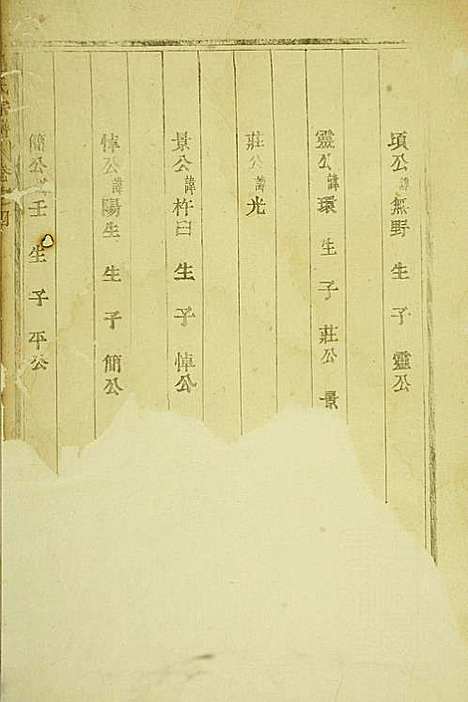 頃公諱無野生子靈公
靈公諱環生子莊公景
莊公諱光
景公諱杵臼生子悼公
悼公諱陽生生子簡公
簡公諱壬生子平公